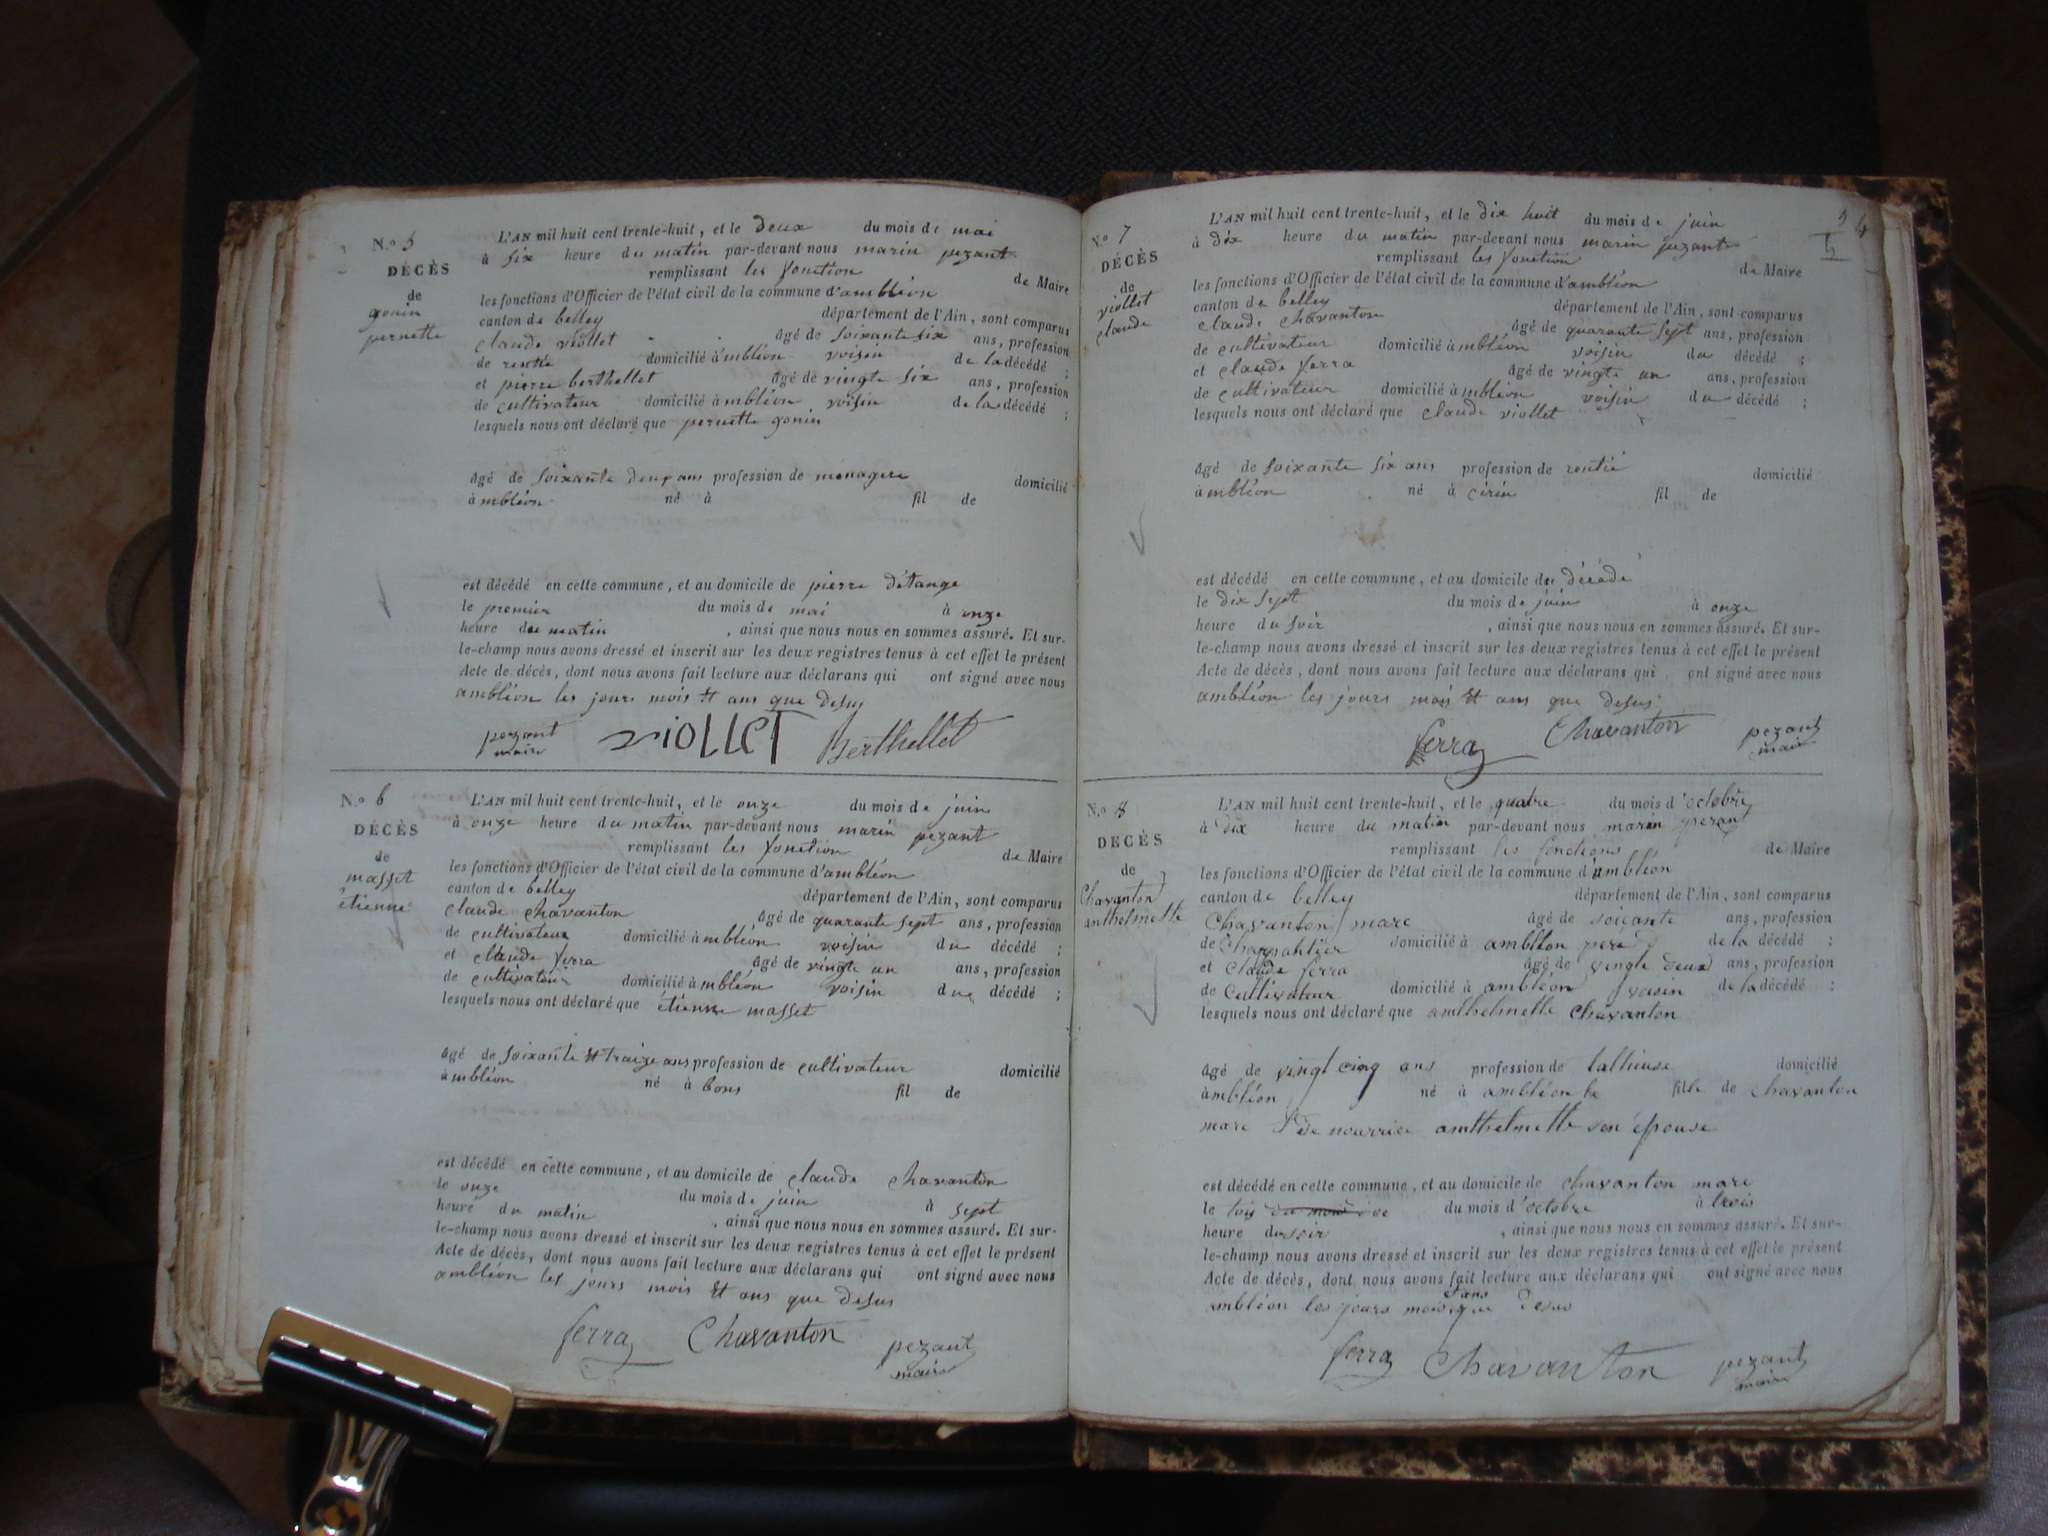 N.o 5
DÉCÈS
de
gonin
pernette
L'AN mil huit cent trente-huit, et le deux du mois de mai
à six heure du matin par-devant nous marin pezant
remplissant les fonction de Maire
les fonctions d'Officier de l'état civil de la commune d'ambléon
canton de belley département de l'Ain, sont comparus
claude viollet âgé de soixante six ans, profession
de rentié domicilié à ambléon voisin de la décédé ;
et pierre berthellet âgé de vingte six ans, profession
de cultivateur domicilié à mbléon voisin de la décédé ;
lesquels nous ont déclaré que pernette gonin
âgé de soixante deux ans profession de menagere domicilié
à mbléon né à fil de
est décédé en cette commune, et au domicile de pierre détange
le premier du mois de mai à onze
heure du matin , ainsi que nous nous en sommes assuré. Et sur-
le-champ nous avons dressé et inscrit sur les deux registres tenus à cet effet le présent
Acte de décès, dont nous avons fait lecture aux déclarans qui ont signé avec nous
ambléon les jours mois et ans que desus
pezant maire VIOLLET Berthellet
N.o 6
DÉCÈS
de
masset
étienne
L'AN mil huit cent trente-huit, et le onze du mois de juin
à onze heure du matin par-devant nous marin pezant
remplissant les fonction de Maire
les fonctions d'Officier de l'état civil de la commune d'ambléon
canton de belley département de l'Ain, sont comparus
claude chavanton âgé de quarante sept ans, profession
de cultivateur domicilié à mbléon voisin du décédé ;
et claude ferra âgé de vingte un ans, profession
de cultivateur domicilié à mbléon voisin du décédé ;
lesquels nous ont déclaré que étienne masset
âgé de soixante et traize ans profession de cultivateur domicilié
à mbléon né à bons fil de
est décédé en cette commune, et au domicile de claude chavanton
le onze du mois de juin à sept
heure du matin , ainsi que nous nous en sommes assuré. Et sur-
le-champ nous avons dressé et inscrit sur les deux registres tenus à cet effet le présent
Acte de décès, dont nous avons fait lecture aux déclarans qui ont signé avec nous
ambléon les jours mois et ans que desus
ferra Chavanton pezant maire
N.o 7
DÉCÈS
de
viollet
claude
L'AN mil huit cent trente-huit, et le dix huit du mois de juin
à dix heure du matin par-devant nous marin pezant
remplissant les fonction de Maire
les fonctions d'Officier de l'état civil de la commune d'ambléon
canton de belley département de l'Ain, sont comparus
claude chavanton âgé de quarante sept ans, profession
de cultivateur domicilié à mbléon voisin du décédé ;
et claude ferra âgé de vingte un ans, profession
de cultivateur domicilié à mbléon voisin du décédé ;
lesquels nous ont déclaré que claude viollet
âgé de soixante six ans profession de rentié domicilié
à mbléon né à cirin fil de
est décédé en cette commune, et au domicile du décédé
le dix sept du mois de juin à onze
heure du soir , ainsi que nous nous en sommes assuré. Et sur-
le-champ nous avons dressé et inscrit sur les deux registres tenus à cet effet le présent
Acte de décès, dont nous avons fait lecture aux déclarans qui ont signé avec nous
ambléon les jours mois et ans que desus
ferra Chavanton pezant maire
N.o 8
DÉCÈS
de
Chavanton
anthelmette
L'AN mil huit cent trente-huit, et le quatre du mois d'octobre
à dix heure du matin par-devant nous marin pezant
remplissant les fonctions de Maire
les fonctions d'Officier de l'état civil de la commune d'ambléon
canton de belley département de l'Ain, sont comparus
Chavanton marc âgé de soicante ans, profession
de Charpantier domicilié à ambléon pere de la décédé ;
et Claude ferra âgé de vingte deux ans, profession
de Cultivateur domicilié à ambléon vasin de la décédé ;
lesquels nous ont déclaré que amthelmette Chavanton
âgé de vingt cinq ans profession de tallieuse domicilié
à mbléon né à ambléon fille de chavanton
marc de nourrice amthelmette son épouse
est décédé en cette commune, et au domicile de chavanton marc
le du mois d'octobre à trois
heure du soir , ainsi que nous nous en sommes assuré. Et sur-
le-champ nous avons dressé et inscrit sur les deux registres tenus à cet effet le présent
Acte de décès, dont nous avons fait lecture aux déclarans qui ont signé avec nous
ambléon les jours mois ans que desus
ferra Chavanton pezant maire